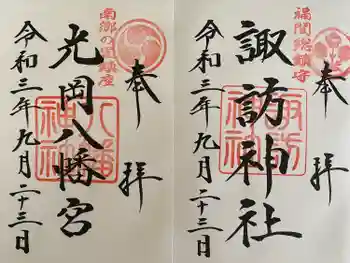 奉拝
南郷の里鎮産
光岡八幡宮
令和三年九月二十三日
奉拝
福間総鎮守
諏訪神社
諏訪神社
令和三年九月二十三日